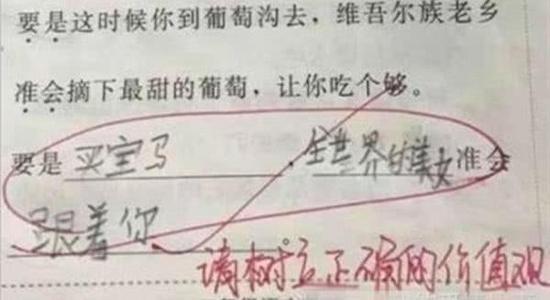 要是这时候你到葡萄沟去，维吾尔族老乡
准会摘下最甜的葡萄，让你吃个够。
要是 买宝马 ，全世界的美女 准会
跟着你 。
请树立正确的价值观